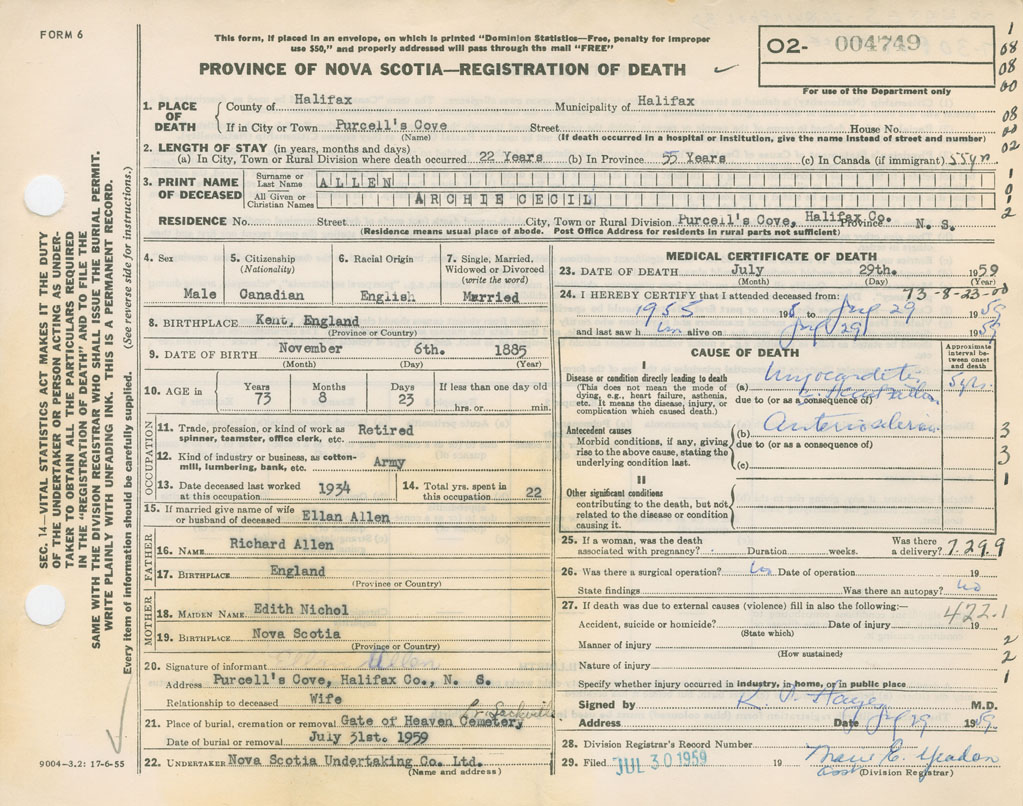 FORM 6
This form, if placed in an envelope, on which is printed "Dominion Statistics—Free, penalty for improper
use $50," and properly addressed will pass through the mail "FREE"
PROVINCE OF NOVA SCOTIA—REGISTRATION OF DEATH
02- 004749
For use of the Department only
1
08
08
00
08
00
02
1
0
1
2
SEC. 14—VITAL STATISTICS ACT MAKES IT THE DUTY
OF THE UNDERTAKER OR PERSON ACTING AS UNDER-
TAKER TO OBTAIN ALL THE PARTICULARS REQUIRED
IN THE "REGISTRATION OF DEATH" AND TO FILE THE
SAME WITH THE DIVISION REGISTRAR WHO SHALL ISSUE THE BURIAL PERMIT.
WRITE PLAINLY WITH UNFADING INK. THIS IS A PERMANENT RECORD.
Every item of information should be carefully supplied. (See reverse side for instructions.)
1. PLACE OF DEATH County of Halifax Municipality of Halifax
If in City or Town Purcell's Cove Street House No.
(Name) (If death occurred in a hospital or institution, give the name instead of street and number)
2. LENGTH OF STAY (in years, months and days)
(a) In City, Town or Rural Division where death occurred 22 Years (b) In Province 55 Years (c) In Canada (if immigrant) 55 yr.
3. PRINT NAME OF DECEASED Surname or Last Name ALLEN
All Given or Christian Names ARCHIE CECIL
RESIDENCE No. Street City, Town or Rural Division Purcell's Cove, Halifax Co. Province N. S.
(Residence means usual place of abode. Post Office Address for residents in rural parts not sufficient)
4. Sex Male
5. Citizenship (Nationality) Canadian
6. Racial Origin English
7. Single, Married, Widowed or Divorced (write the word) Married
8. BIRTHPLACE Kent, England
(Province or Country)
9. DATE OF BIRTH November 6th. 1885
(Month) (Day) (Year)
10. AGE in Years 73 Months 8 Days 23 If less than one day old hrs. or min.
OCCUPATION
11. Trade, profession or kind of work as spinner, teamster, office clerk, etc. Retired
12. Kind of industry or business, as cotton-mill, lumbering, bank, etc. Army
13. Date deceased last worked at this occupation 1934
14. Total yrs. spent in this occupation 22
15. If married give name of wife or husband of deceased Ellan Allen
FATHER
16. NAME Richard Allen
17. BIRTHPLACE England
(Province or Country)
MOTHER
18. MAIDEN NAME Edith Nichol
19. BIRTHPLACE Nova Scotia
(Province or Country)
20. Signature of informant Ellen Allen
Address Purcell's Cove, Halifax Co., N. S.
Relationship to deceased Wife
21. Place of burial, cremation or removal Gate of Heaven Cemetery Sackville
Date of burial or removal July 31st. 1959
22. UNDERTAKER Nova Scotia Undertaking Co. Ltd.
(Name and address)
9004—3.2: 17-6-55
MEDICAL CERTIFICATE OF DEATH
23. DATE OF DEATH July 29th. 1959
(Month) (Day) (Year)
73-8-23-00
24. I HEREBY CERTIFY that I attended deceased from:
1955 195 to July 29 1959
and last saw him alive on July 29 1959
CAUSE OF DEATH
Approximate interval between onset and death
I
Disease or condition directly leading to death
(This does not mean the mode of dying, e.g., heart failure, asthenia, etc. It means the disease, injury, or complication which caused death.)
(a) Myocarditis 5 yrs.
due to (or as a consequence of)
Antecedent causes
Morbid conditions, if any, giving rise to the above cause, stating the underlying condition last.
(b)
due to (or as a consequence of)
(c)
3
3
1
II
Other significant conditions
contributing to the death, but not related to the disease or condition causing it.
25. If a woman, was the death associated with pregnancy? Duration weeks. Was there a delivery?
7.29.9
26. Was there a surgical operation? No Date of operation 19
State findings Was there an autopsy? No
27. If death was due to external causes (violence) fill in also the following:—
422.1
Accident, suicide or homicide? Date of injury 19
(State which)
Manner of injury 2
(How sustained)
Nature of injury 2
Specify whether injury occurred in industry, in home, or in public place 1
Signed by M.D.
Address Date July 29 1959
28. Division Registrar's Record Number
29. Filed JUL 30 1959 19 Marie E. Yeadon
(Division Registrar)